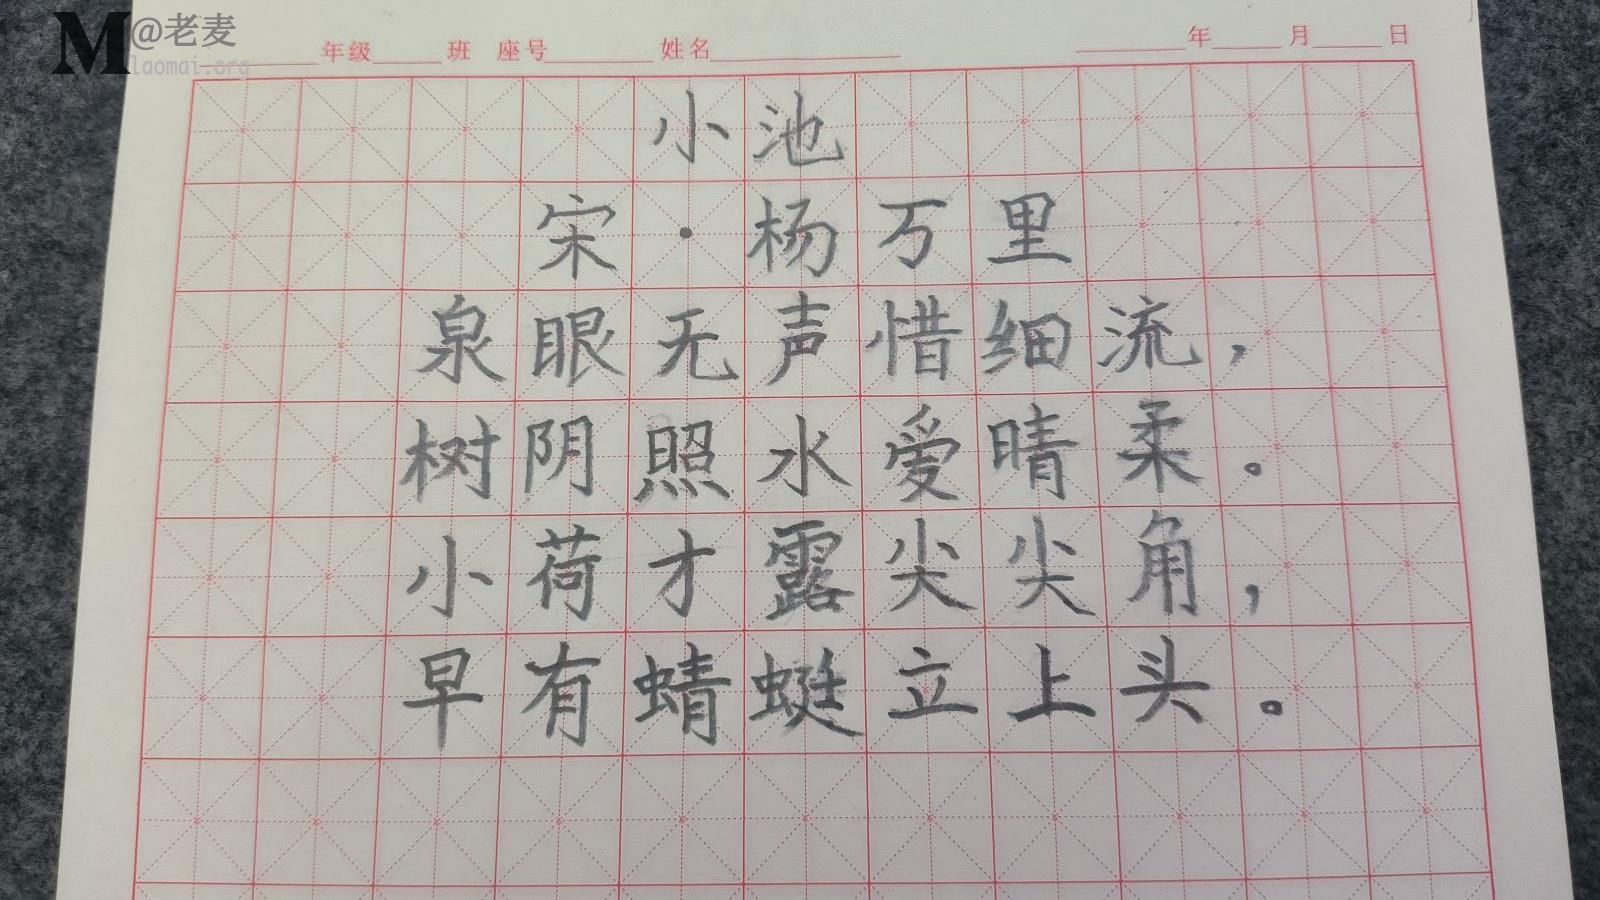 M@老麦
laomai.org
年级 班 座号 姓名 年 月 日
小池
宋·杨万里
泉眼无声惜细流，
树阴照水爱晴柔。
小荷才露尖尖角，
早有蜻蜓立上头。